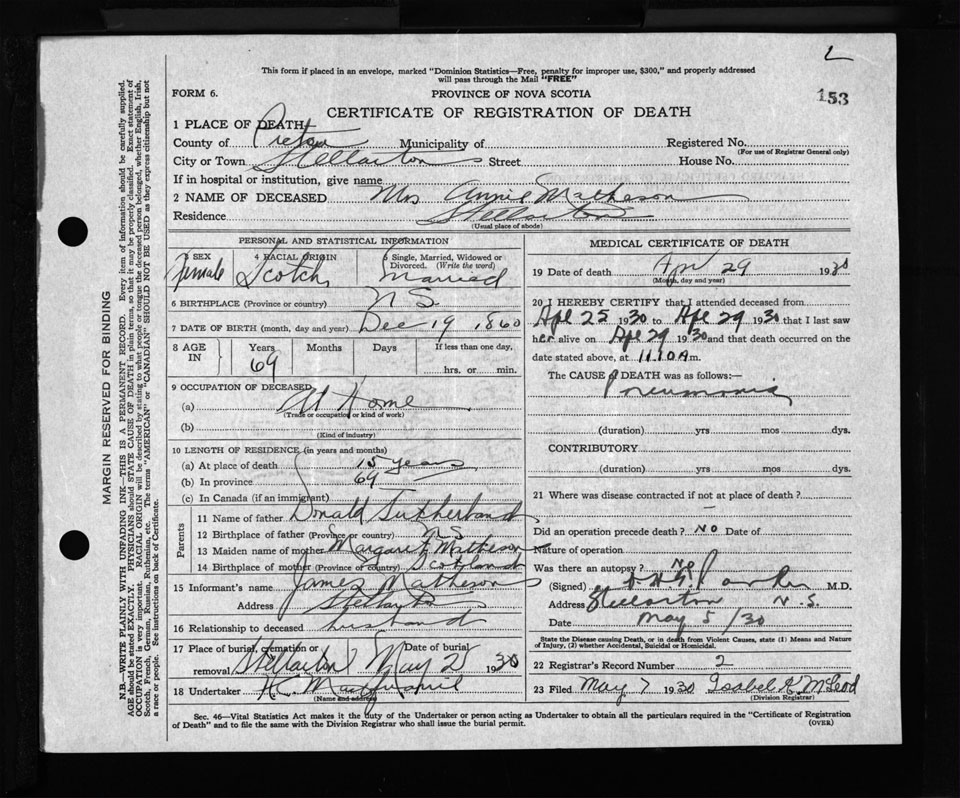 L
This form if placed in an envelope, marked "Dominion Statistics—Free, penalty for improper use, $300," and properly addressed
will pass through the Mail "FREE"
FORM 6. PROVINCE OF NOVA SCOTIA 153
CERTIFICATE OF REGISTRATION OF DEATH
1 PLACE OF DEATH
County of Pictou Municipality of Registered No.
(For use of Registrar General only)
City or Town Stellarton Street House No.
If in hospital or institution, give name
2 NAME OF DECEASED Mrs Annie Matheson
Residence Stellarton
(Usual place of abode)
PERSONAL AND STATISTICAL INFORMATION
3 SEX 4 RACIAL ORIGIN 5 Single, Married, Widowed or
Divorced. (Write the word)
Female Scotch Married
6 BIRTHPLACE (Province or country) N S.
7 DATE OF BIRTH (month, day and year) Dec 19, 1860
8 AGE IN Years Months Days If less than one day,
69 hrs. or min.
9 OCCUPATION OF DECEASED
(a) At Home
(Trade or occupation or kind of work)
(b)
(Kind of industry)
10 LENGTH OF RESIDENCE (in years and months)
(a) At place of death 15 years
(b) In province 69
(c) In Canada (if an immigrant)
Parents
11 Name of father Donald Sutherland
12 Birthplace of father (Province or country) N S
13 Maiden name of mother Margaret Matheson
14 Birthplace of mother (Province or country) Scotland
15 Informant's name James Matheson
Address Stellarton
16 Relationship to deceased husband
17 Place of burial, cremation or Date of burial
removal Stellarton May 2 1930
18 Undertaker H.C.
(Name and address)
MEDICAL CERTIFICATE OF DEATH
19 Date of death Apr 29 1930
(Month, day and year)
20 I HEREBY CERTIFY that I attended deceased from
Apl 25 1930 to Apl 29 1930 that I last saw
her alive on Apl 29 1930 and that death occurred on the
date stated above, at 11.10 A m.
The CAUSE OF DEATH was as follows:—
Pneumonia
(duration) yrs mos dys.
CONTRIBUTORY
(duration) yrs mos dys.
21 Where was disease contracted if not at place of death?
Did an operation precede death? NO Date of
Nature of operation
Was there an autopsy? NO
(Signed) Parker M.D.
Address Stellarton N.S.
Date May 5/30
State the Disease causing Death, or in death from Violent Causes, state (1) Means and Nature
of Injury, (2) whether Accidental, Suicidal or Homicidal.
22 Registrar's Record Number 2
23 Filed May 7 1930 Isobel A. McLeod
(Division Registrar)
Sec. 46—Vital Statistics Act makes it the duty of the Undertaker or person acting as Undertaker to obtain all the particulars required in the "Certificate of Registration
of Death" and to file the same with the Division Registrar who shall issue the burial permit. (OVER)
MARGIN RESERVED FOR BINDING
N.B.—WRITE PLAINLY WITH UNFADING INK—THIS IS A PERMANENT RECORD. Every item of information should be carefully supplied.
AGE should be stated EXACTLY. PHYSICIANS should STATE CAUSE OF DEATH in plain terms, so that it may be properly classified. Exact statement of
OCCUPATION is very important. RACIAL ORIGIN will be described by stating to what people or tongue the deceased person belonged, whether English, Irish,
Scotch, French, German, Russian, Ruthenian, etc. The terms "AMERICAN" or "CANADIAN" SHOULD NOT BE USED as they express citizenship but not
a race or people. See instructions on back of Certificate.